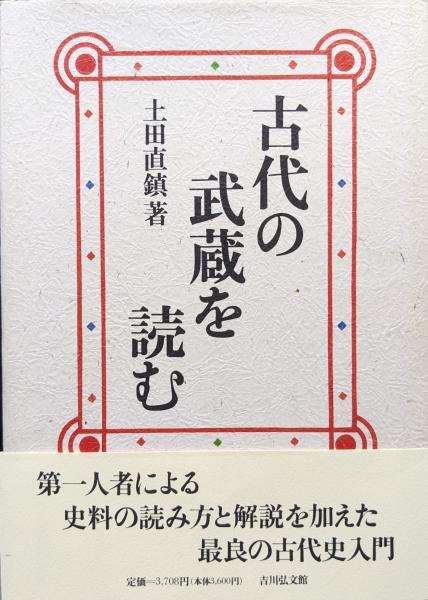 古代の
武蔵を
読む
土田直鎮著
第一人者による
史料の読み方と解説を加えた
最良の古代史入門
定価=3,708円(本体3,600円) 吉川弘文館